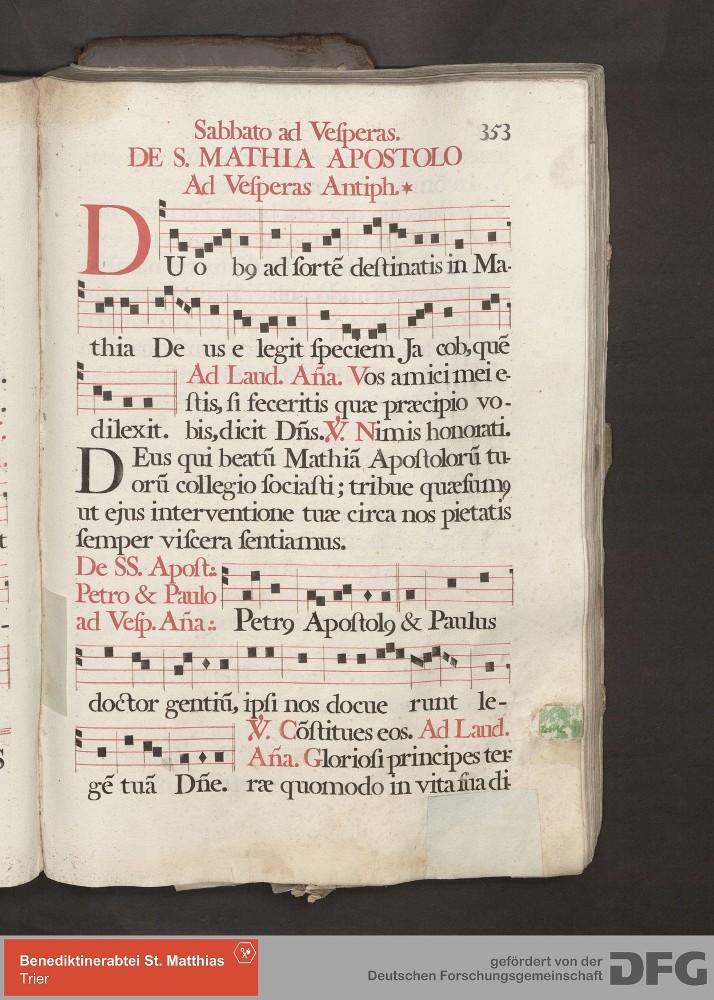 Sabbato ad Veſperas. 353
DE S. MATHIA APOSTOLO
Ad Veſperas Antiph.*
DU o bꝯ ad ſortē deſtinatis in Ma-
thia De us e legit ſpeciem Ja cob, quē
Ad Laud. Aña. Vos amici mei e-
ſtis, ſi feceritis quæ præcipio vo-
dilexit. bis, dicit Dñs. ℣. Nimis honorati.
DEus qui beatū Mathiā Apoſtolorū tu-
orū collegio ſociaſti; tribue quæſumꝯ
ut ejus interventione tuæ circa nos pietatis
ſemper viſcera ſentiamus.
De SS. Apoſt:.
Petro & Paulo
ad Veſp. Aña:. Petrꝯ Apoſtolꝯ & Paulus
doctor gentiū, ipſi nos docue runt le-
℣. Cōſtitues eos. Ad Laud.
Aña. Glorioſi principes ter
gē tuā Dñe. ræ quomodo in vita ſua di-
Benediktinerabtei St. Matthias
Trier
gefördert von der
Deutschen Forschungsgemeinschaft DFG